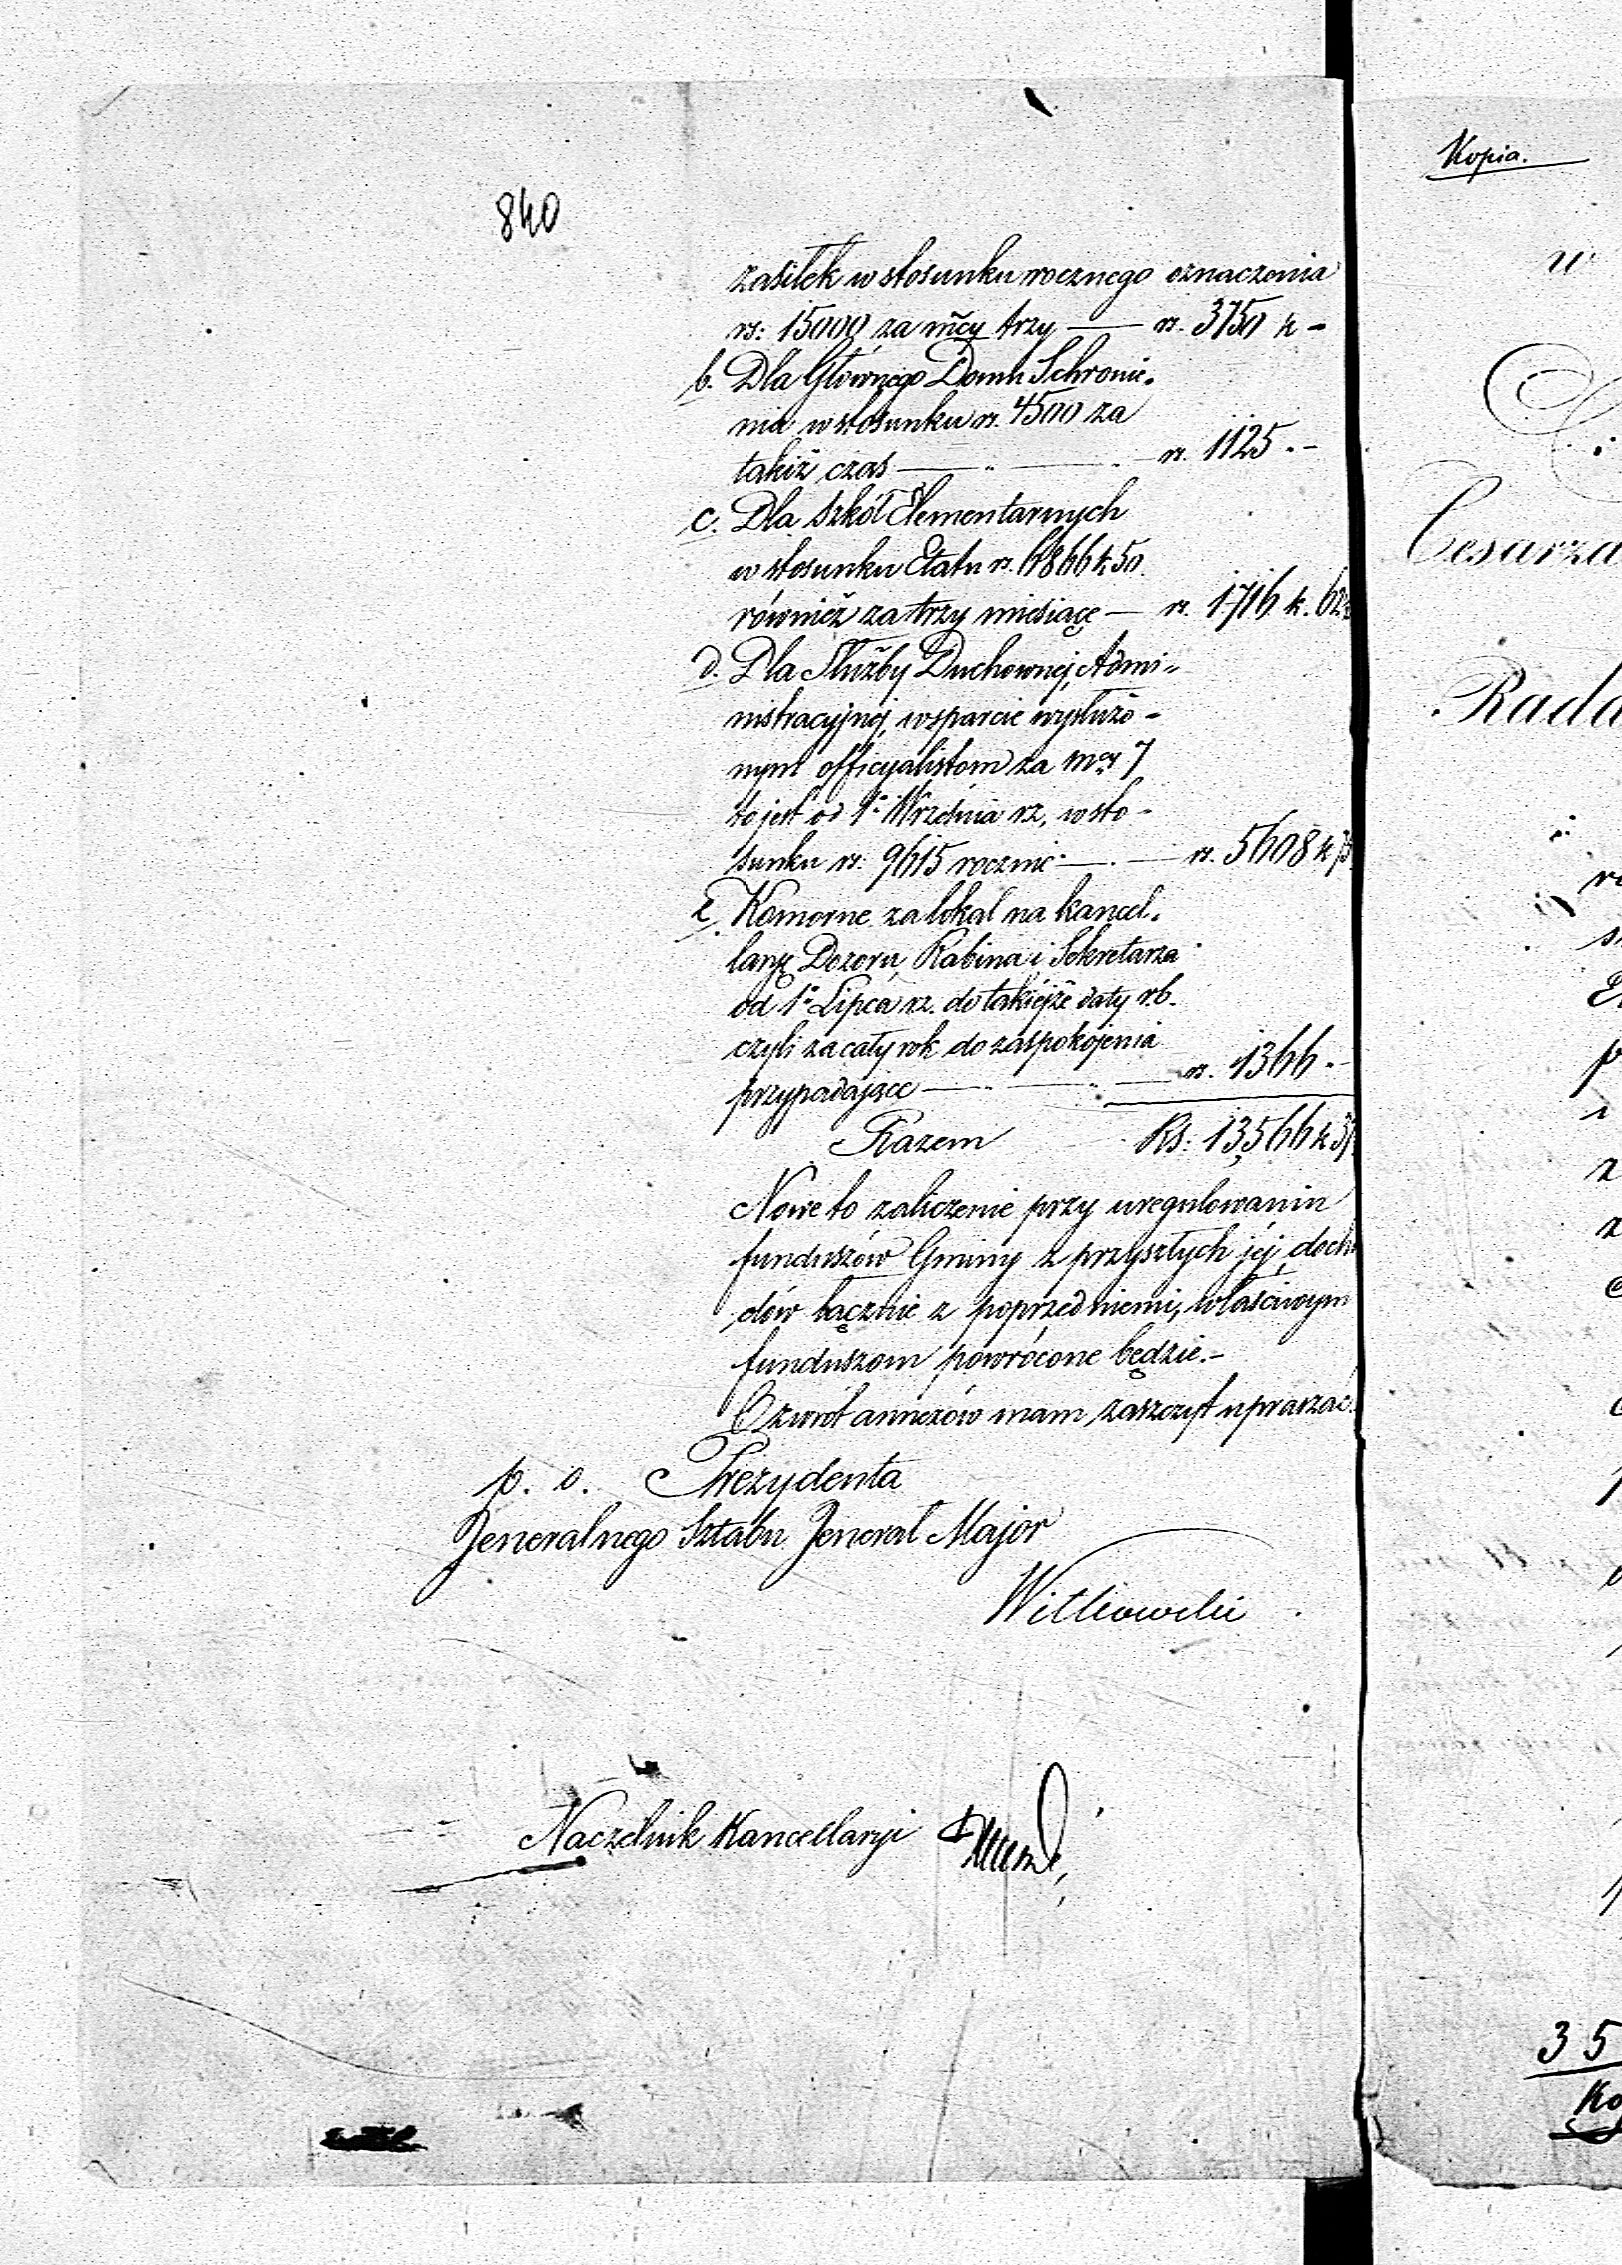 840
zasiłek w stosunku rocznego oznaczenia
rs: 15000 za mcy trzy — rs. 3750 k -
b. Dla Głównego Domu Schronie-
nia w stosunku rs. 4500 za
takiż czas — " — " — rs. 1125 " -
c. Dla szkół Elementarnych
w stosunku Etatu rs. 6866 k 50.
również za trzy miesiące — rs. 1716 k. 62½
d. Dla Służby Duchownej, Admi-
nistracyjnej, wsparcie wysłużo-
nym officyalistom za mcy 7
to jest od 1o Września rz. w sto-
sunku rs. 9615 rocznie — " — rs. 5608 k 75
e. Komorne za lokal na kancel-
laryę Dozoru, Rabina i Sekretarza
od 1o Lipca rz. do takiejże daty r.b.
czyli za cały rok do zaspokojenia
przypadające — " — " — rs. 1366 " -
Razem Rs: 13,566 k 37
Nowe to zaliczenie przy uregulowaniu
funduszów Gminy z przyszłych jéj docho
dów łącznie z poprzedniemi, właściwym
funduszom powrócone będzie.-
O zwrót annexów mam zaszczyt upraszać.
p. o. Prezydenta
Jeneralnego Sztabu Jenerał Major
Witkowski
Naczelnik Kancellaryi
Kopia.
w
Cesarza
Rada
35
Ko